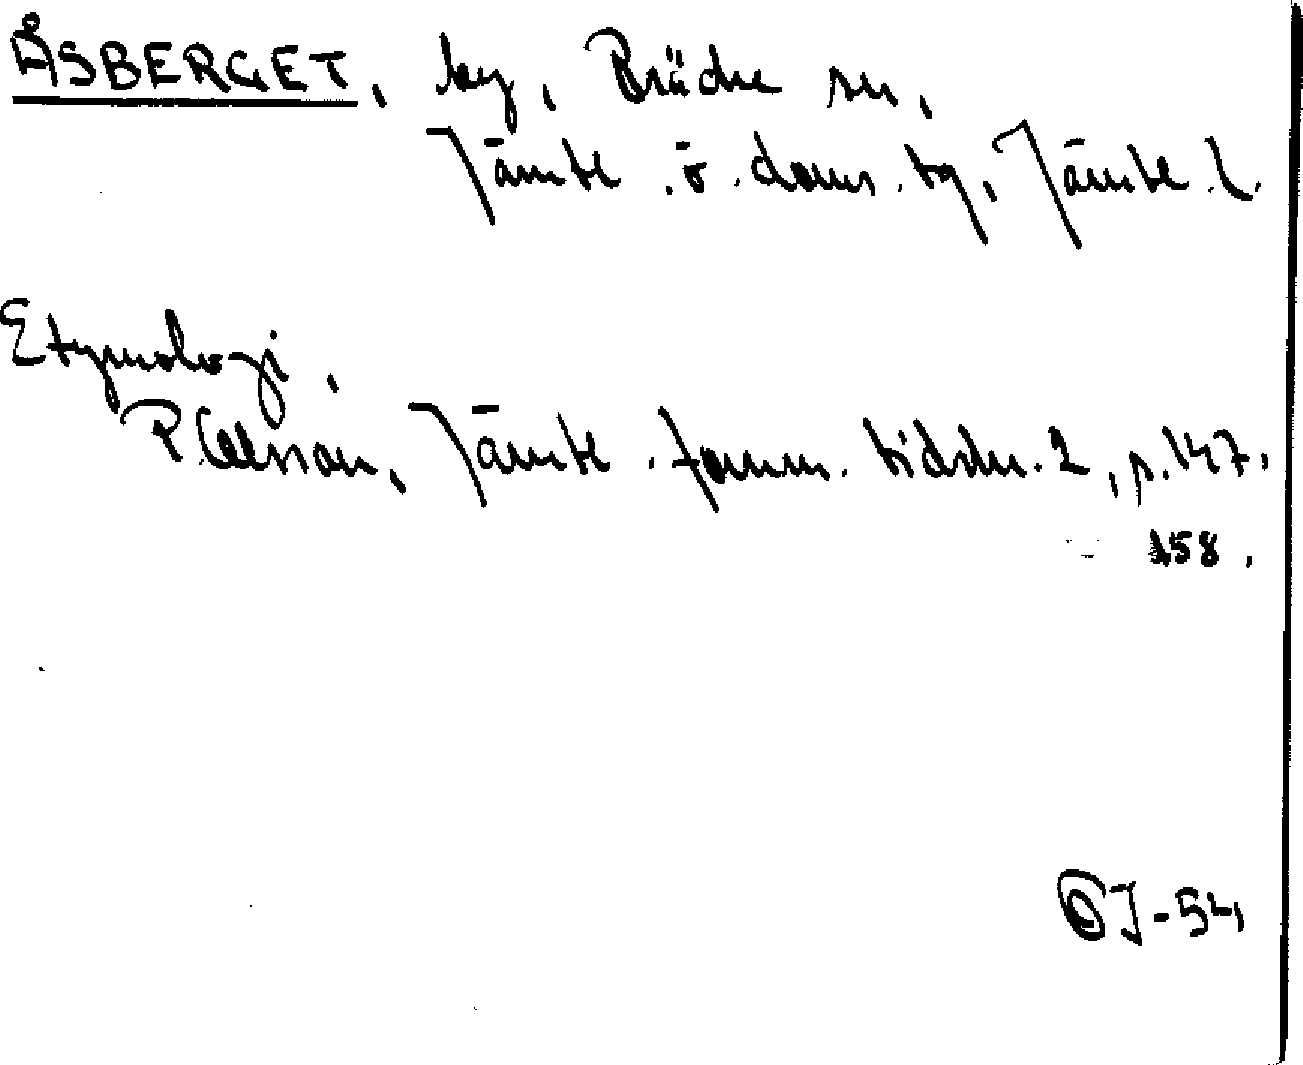 ÅSBERGET, by, Bräcke sn,
Jämtl. ö. doms. tg, Jämtl. l.
Etymologi,
P. Olsson, Jämtl. fornm. tidskr. 2, s. 147.
158.
J-54